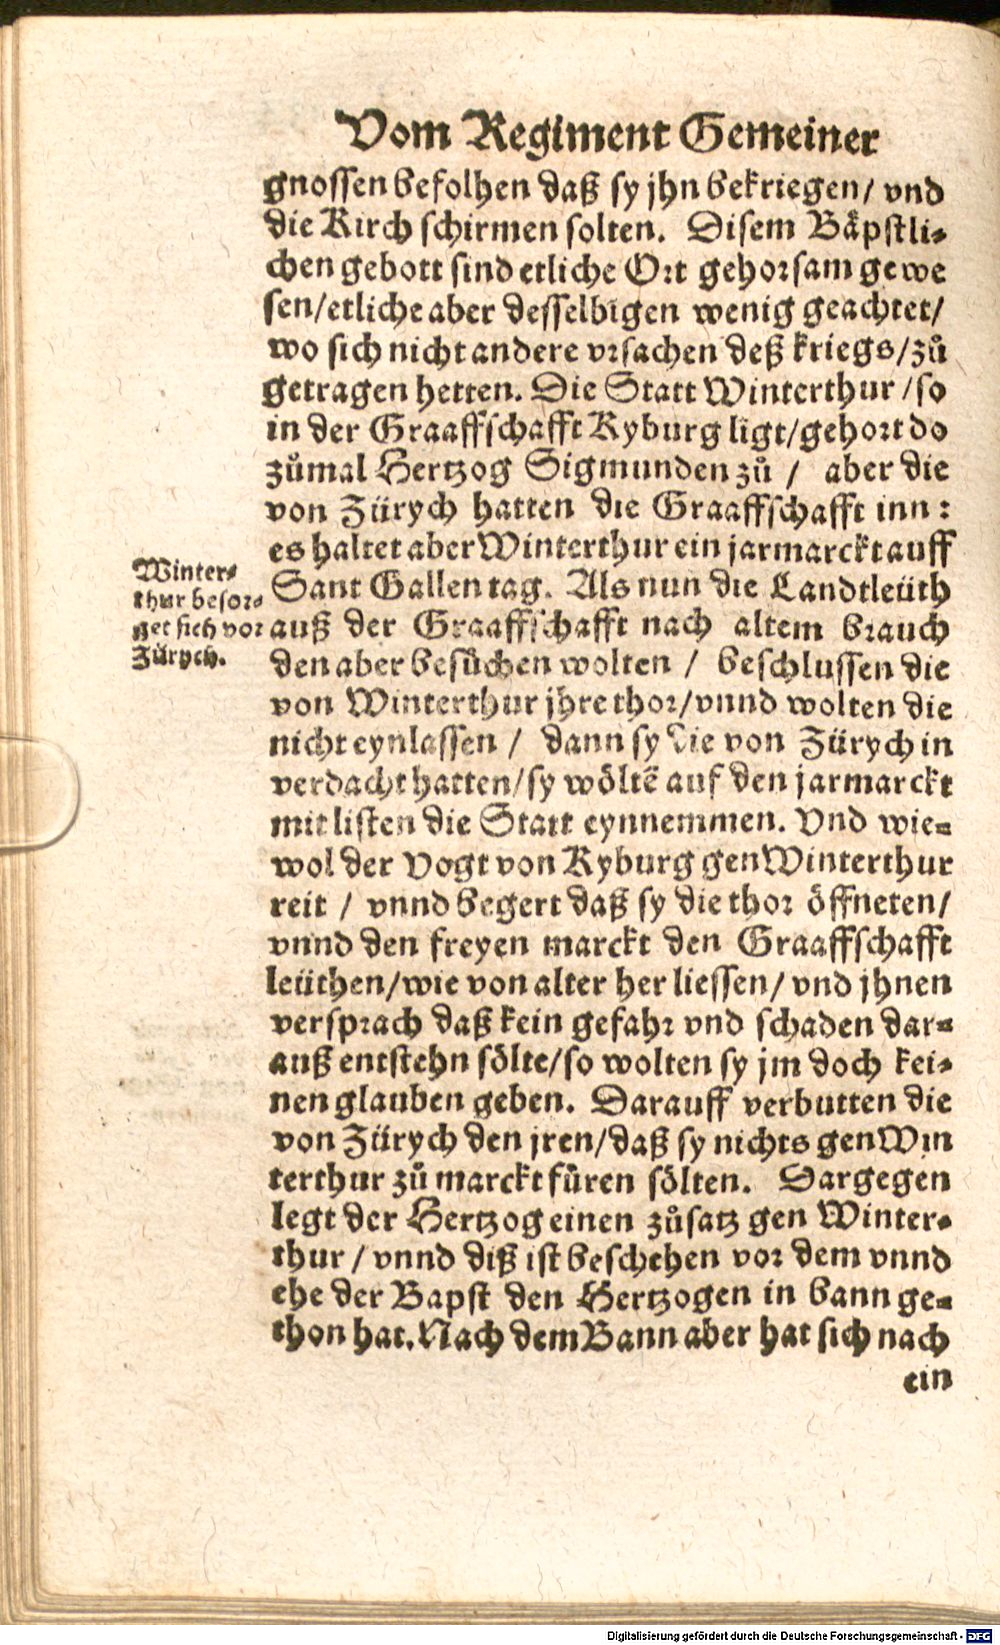 Vom Regiment Gemeiner
gnossen befolhen daß sy jhn bekriegen/ vnd
die Kirch schirmen solten. Disem Bäpstli-
chen gebott sind etliche Ort gehorsam gewe
sen/etliche aber desselbigen wenig geachtet/
wo sich nicht andere vrsachen deß kriegs/zů
getragen hetten. Die Statt Winterthur /so
in der Graaffschafft Kyburg ligt/gehort do
zůmal Hertzog Sigmunden zů / aber die
von Zürych hatten die Graaffschafft inn:
es haltet aber Winterthur ein jarmarckt auff
Sant Gallen tag. Als nun die Landtleüth
auß der Graaffschafft nach altem brauch
den aber besůchen wolten / beschlussen die
von Winterthur jhre thor/vnnd wolten die
nicht eynlassen / dann sy die von Zürych in
verdacht hatten/sy wöltē auf den jarmarckt
mit listen die Statt eynnemmen. Vnd wie-
wol der Vogt von Kyburg gen Winterthur
reit / vnnd begert daß sy die thor öffneten/
vnnd den freyen marckt den Graaffschafft
leüthen/wie von alter her liessen/ vnd jhnen
versprach daß kein gefahr vnd schaden dar-
auß entstehn sölte/so wolten sy jm doch kei-
nen glauben geben. Darauff verbutten die
von Zürych den jren/daß sy nichts gen Win
terthur zů marckt füren sölten. Dargegen
legt der Hertzog einen zůsatz gen Winter-
thur / vnnd diß ist beschehen vor dem vnnd
ehe der Bapst den Hertzogen in bann ge-
thon hat. Nach dem Bann aber hat sich nach
ein
Winter-
thur besor-
get sich vor
Zürych.
Digitalisierung gefördert durch die Deutsche Forschungsgemeinschaft - DFG